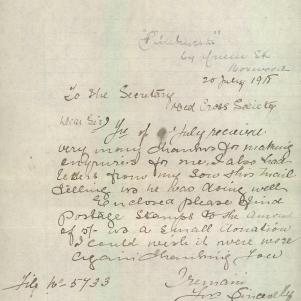 "Pinehurst"
69 Queen St
Norwood
20 July 1918
To the Secretary
Red Cross Society
Dear Sir, Yr of July received
very many thanks for making
enquiries for me. I also had
letters from my son this mail
telling us he was doing well
Enclosed please find
Postage Stamps to the amount
of as a small donation
I could wish it were more
again thanking you
I remain
Yrs Sincerely
File No 5733